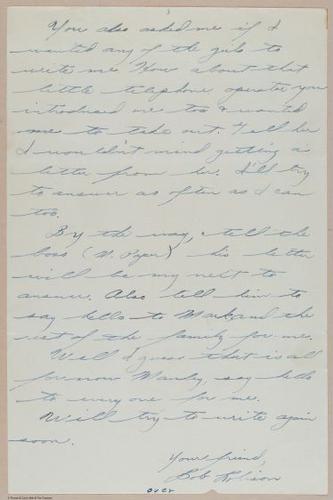 3
You also asked me if I
wanted any of the girls to
write me. How about that
little telephone operator you
introduced me too & wanted
me to take out. Tell her
I wouldn't mind getting a
letter from her. I'll try
to answer as often as I can
too.
By the way, tell the
boss (W. Pyer) his letter
will be my next to
answer. Also tell him to
say hello to Mark and the
rest of the family for me.
Well I guess that is all
for now Manly, say hello
to every one for me.
Will try to write again
soon.
Your friend,
Bob
over